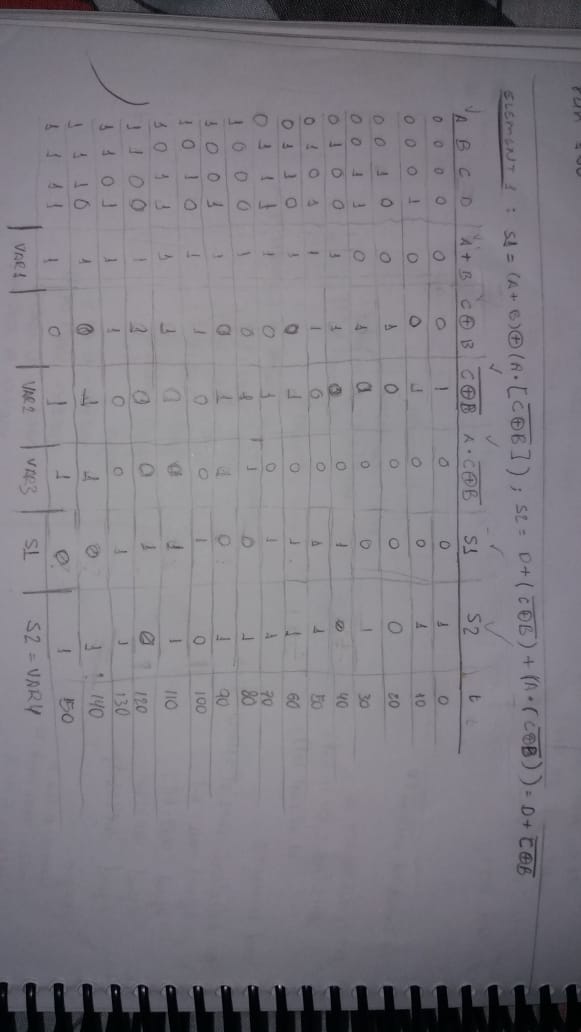 ELEMENT 1 : S1 = (A+B)⊕(A·[C̅⊕̅B̅]) ; S2 = D+(C̅⊕̅B̅)+(A·(C̅⊕̅B̅)) = D+C̅⊕̅B̅
A B C D A+B C⊕B C̅⊕̅B̅ A·C̅⊕̅B̅ S1 S2 t
0 0 0 0 0 0 1 0 0 1 0
0 0 0 1 0 0 1 0 0 1 10
0 0 1 0 0 1 0 0 0 0 20
0 0 1 1 0 1 0 0 0 1 30
0 1 0 0 1 1 0 0 1 0 40
0 1 0 1 1 1 0 0 1 1 50
0 1 1 0 1 0 1 0 1 1 60
0 1 1 1 1 0 1 0 1 1 70
1 0 0 0 1 0 1 1 0 1 80
1 0 0 1 1 0 1 1 0 1 90
1 0 1 0 1 1 0 0 1 0 100
1 0 1 1 1 1 0 0 1 1 110
1 1 0 0 1 1 0 0 1 0 120
1 1 0 1 1 1 0 0 1 1 130
1 1 1 0 1 0 1 1 0 1 140
1 1 1 1 1 0 1 1 0 1 150
VAR1 VAR2 VAR3 S1 S2 = VAR4